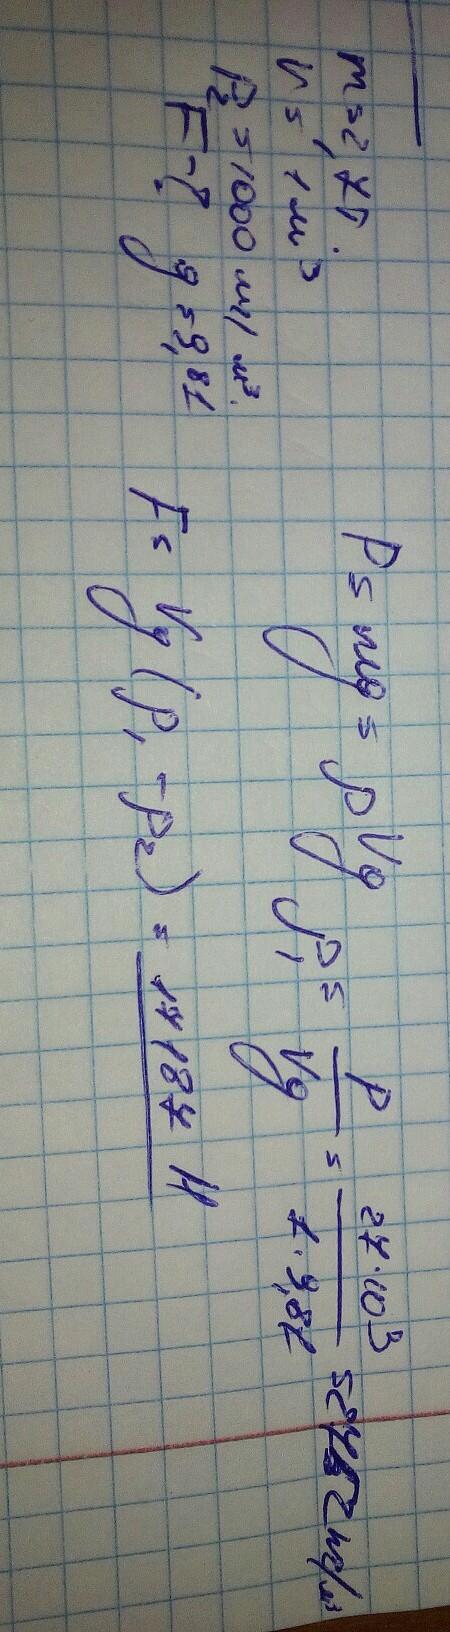 m = 2,7т.
V = 1 м³
ρ₂ = 1000 кг/м³.
F - ? g = 9,81
P = mg = ρVg
ρ₁ = P/Vg = 27·10³/1·9,81 = 2752 кг/м³
F = Vg(ρ₁ - ρ₂) = 17187 Н